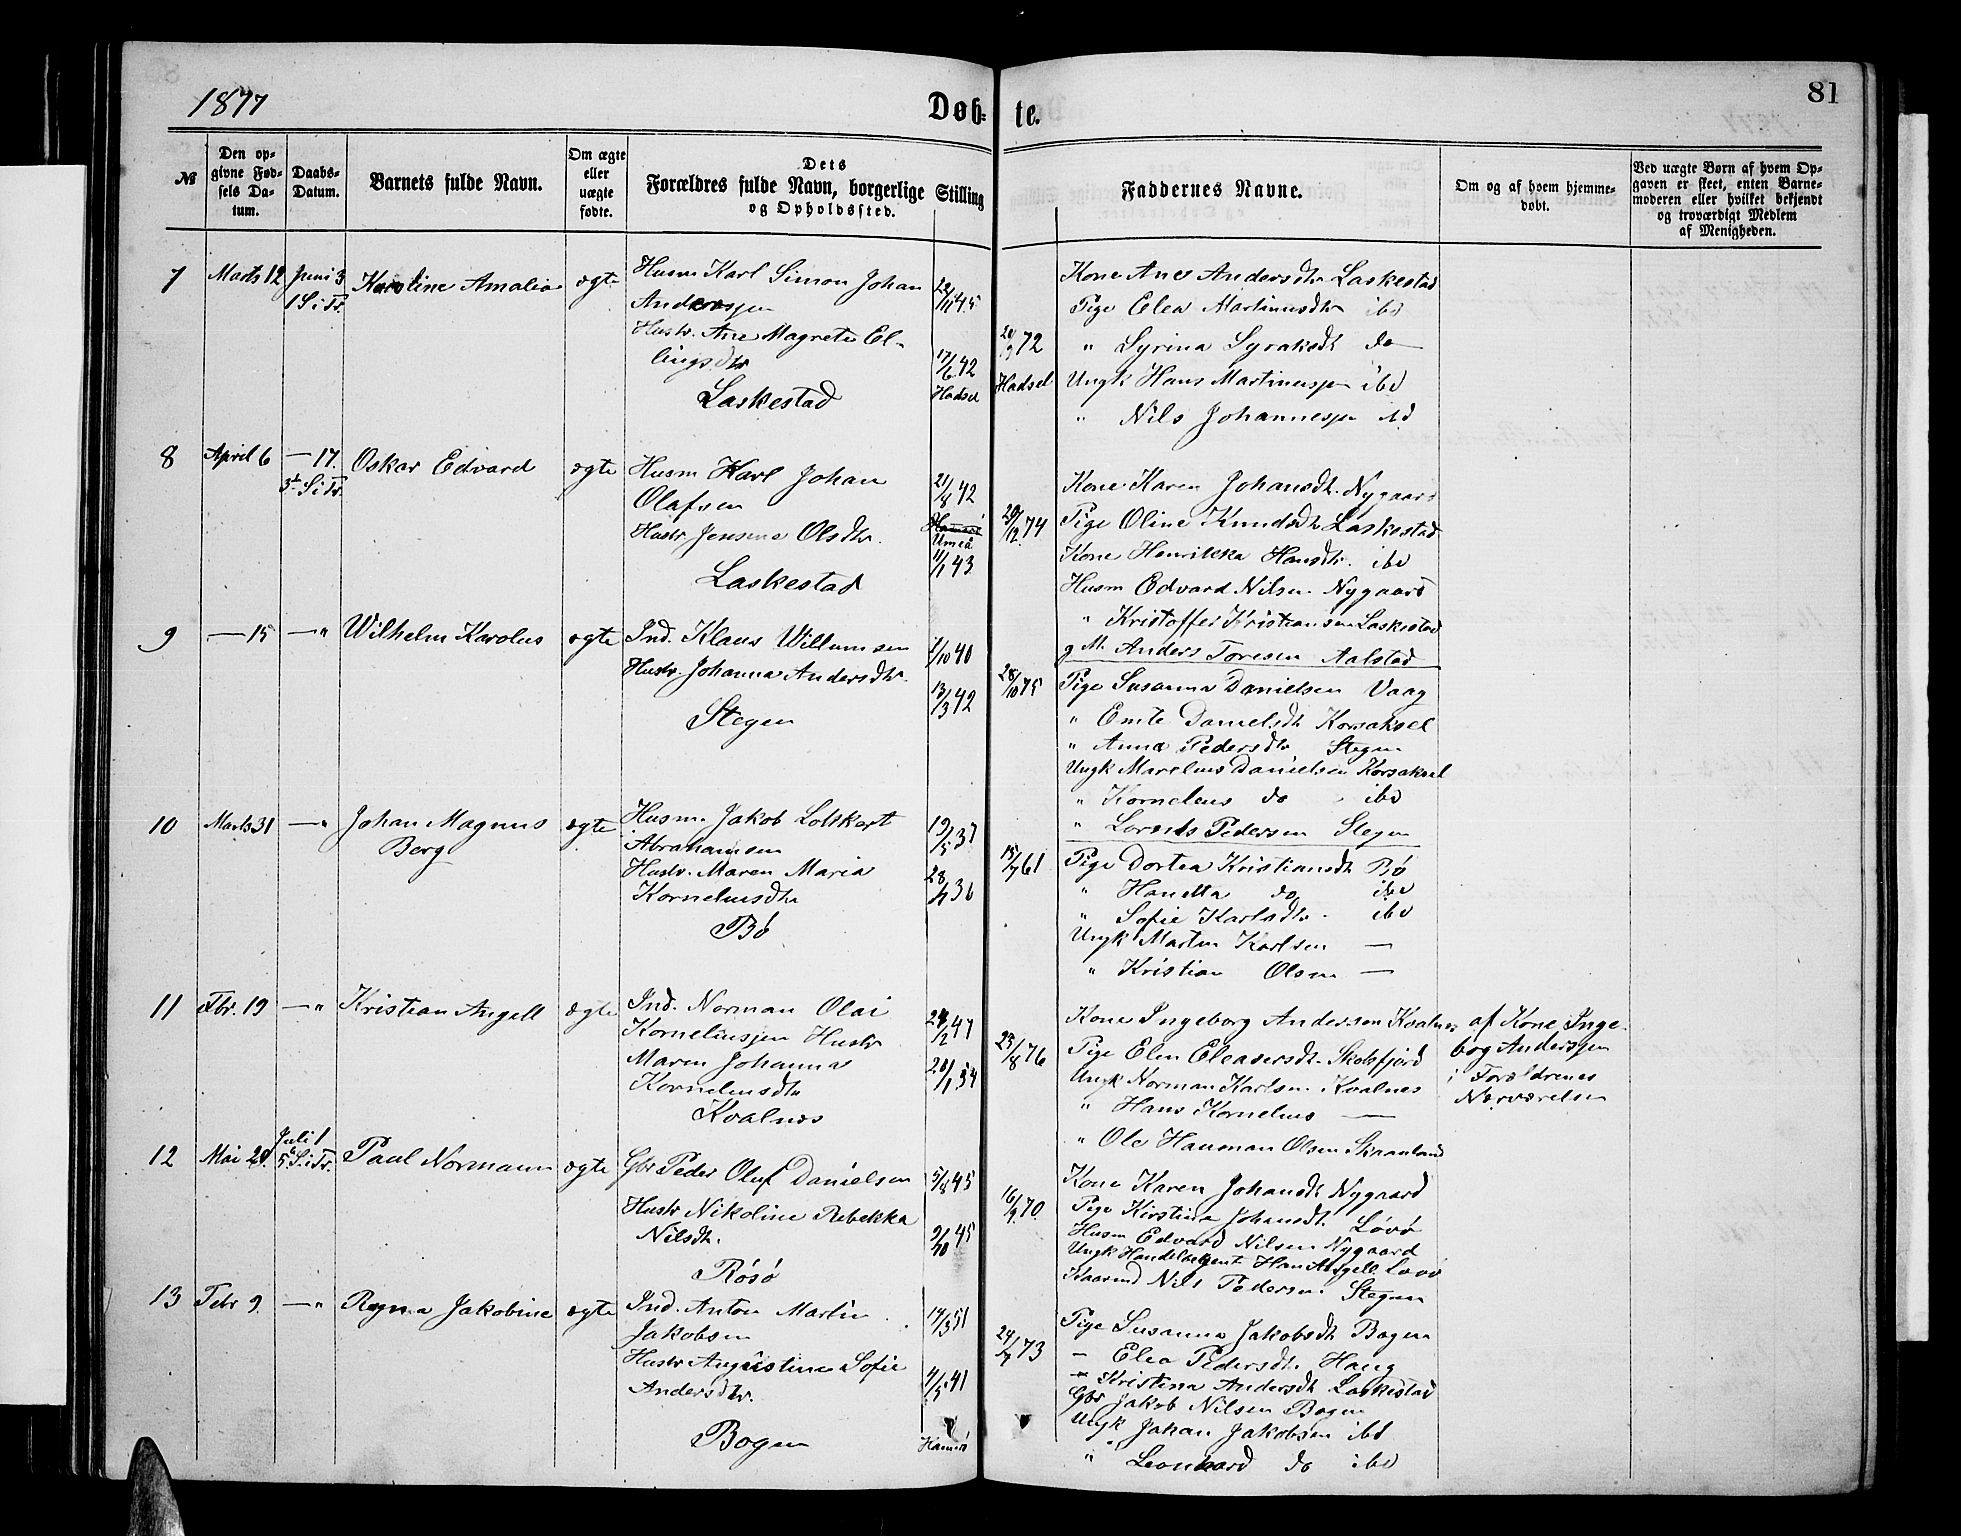 1877
Døb-
te.
81
№
Den op-
givne Fød-
sels Da-
tum.
Daabs-
Datum.
Barnets fulde Navn.
Om ægte
eller
uægte
fødte.
Dets
Forældres fulde Navn, borgerlige Stilling
og Opholdssted.
Faddernes Navne.
Om og af hvem hjemme-
døbt.
Ved uægte Børn af hvem Op-
gaven er skeet, enten Barne-
moderen eller hvilket bekjendt
og troværdigt Medlem
af Menigheden.
7
Marts 12
Juni 3
1 S. i Tr.
Karoline Amalia
ægte
Husm Karl Simon Johan
Anderssen
Hustr. Ane Magrete El-
lingsdtr
Laskestad
/11 45
17/6 42
Hadsel
72
Hadsel
Kone Anes Andersdtr Laskestad
Pige Elea Martinusdtr ibd
" Syrina Syraksdt do
Ungk Hans Martinussen ibd
" Nils Johannessen ibd
8
April 6
— 17.
3die S. i Tr.
Oskar Edvard
ægte
Husm Karl Johan
Olafsen
Hustr Jensine Olsdtr.
Laskestad
21/8 42
Umeå
11/1 43
29/12 74
Kone Karen Johansdt. Nygaard
Pige Oline Knudsdtr Laskestad
Kone Henrikka Hansdtr. ibd
Husm Edvard Nilsen Nygaard
" Kristoffer Kristiansen Laskestad
g M. Anders Toresen Aalstad
9
— 15
— "
Wilhelm Karolus
ægte
Ind. Klaus Willumsen
Hustr. Johanna Andersdtr.
Stegen
/10 40
13/3 42
28/10 75
Pige Susanna Danielsen Vaag
" Emte Danielsdt Korsaksel
" Anna Pedersdtr Stegen
Ungk Marelius Danielsen Korsaksel
" Kornelius do ibd
" Lornts Pedersen Stegen
10
Marts 31
— "
Johan Magnus
Berg
ægte
Husm. Jakob Lotskert
Abrahamsen
Hustr. Maren Maria
Korneliusdtr
Bø
19/5 37
28/ 36
15/7 61
Pige Dortea Kristiansdt Bø
" Hanetta do ibd
" Sofie Karlsdtr. ibd
Ungk Martin Karlsen —
" Kristian Olsen —
11
Fbr. 19
— "
Kristian Angell
ægte
Ind. Norman Olai
Korneliussen Hustr
Maren Johanna
Korneliusdtr
Kvalnes
/2 47
20/1 54
23/8 76
Kone Ingeborg Anderssen Kvalnes
Pige Elen Eleasersdt. Skotsfjord
Ungk Norman Karlsen Kvalnes
" Hans Kornelius —
" Ole Hauman Olsen Skaanland
af Kone Inge-
borg Anderssen
i Forældrenes
Nærværelse
12
Mai 20.
Juli 1
5 S. i Tr.
Paul Normann
ægte
Gbr Peder Oluf Danielsen
Hustr Nikoline Rebekka
Nilsdt.
Røsø
5/8 45
9/10 45
16/9 70.
Kone Karen Johansdt Nygaard
Pige Kirstina Johansdt. Løvø
Husm Edvard Nilsen Nygaard
Ungk Handelsagent Hans Angell Løvø
Kaarmd Nils Pedersen Stegen
13
Febr 9.
— "
Ragna Jakobine
ægte
Ind. Anton Martin
Jakobsen
Hustr Augustine Sofie
Andersdtr.
Bogen
14/3 51
4/5 41
Hamarø
24/7 73
Pige Susanna Jakobsdt Bogen
— Elea Pedersdt. Haug
— Kristina Andersdt Laskestad
Gbr Jakob Nilsen Bogen
Ungk Johan Jakobsen ibd
" Leonhard do ibd